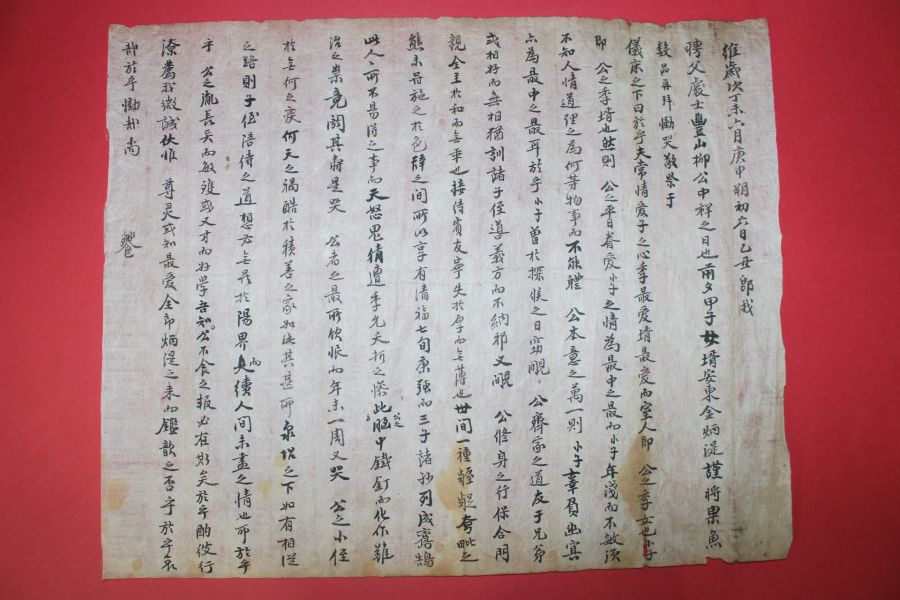 維歲次丁未六月庚申朔初六日乙丑卽我
聘父處士豊山柳公中祥之日也前夕甲子女壻安東金炳湜謹將果魚
數品再拜慟哭敬祭于
儀床之下曰於乎夫常情愛子之心季最愛壻最愛而室人卽 公之季女也小子
卽 公之季壻也然則 公之平日眷愛小子之情爲最中之最而小子年淺而不敏須
不知人情道理之爲何等物事而不能體 公本意之萬一則小子辜負幽冥
亦爲最中之最耳於乎小子曾於探候之日窃覸 公齊家之道友于兄弟
式相好而無相猶訓諸子侄遵義方而不納邪又覸 公修身之行保合門
親全主於和而無乖也接待賓友寧失於厚而無薄也世間一種 夸毗之
態未甞施之於色辭之間所以享有淸福七旬康强而三子諸孫列成鸞鵠
此人人所不易得之事而天怒鬼猜遭季允夭折之慘此公之腦中鐵釘而化尓難
治之祟竟閼其壽是哭 公者之最所欣恨而年未一周又哭 公之小侄
於無何之疾何天之禍酷於積善之家如此其甚耶泉坮之下如有相從
之路則子侄陪侍之道想必無異於陽界而是續人間未盡之情也耶於乎
乎 公之胤長兵而敏雖或又才而好學吾知公不食之報必在於矣於乎酌彼行
潦薦我微誠伏惟 尊灵或知最愛全卽炳湜之來而鑑歆之否乎於乎哀
却於乎慟却尙
饗